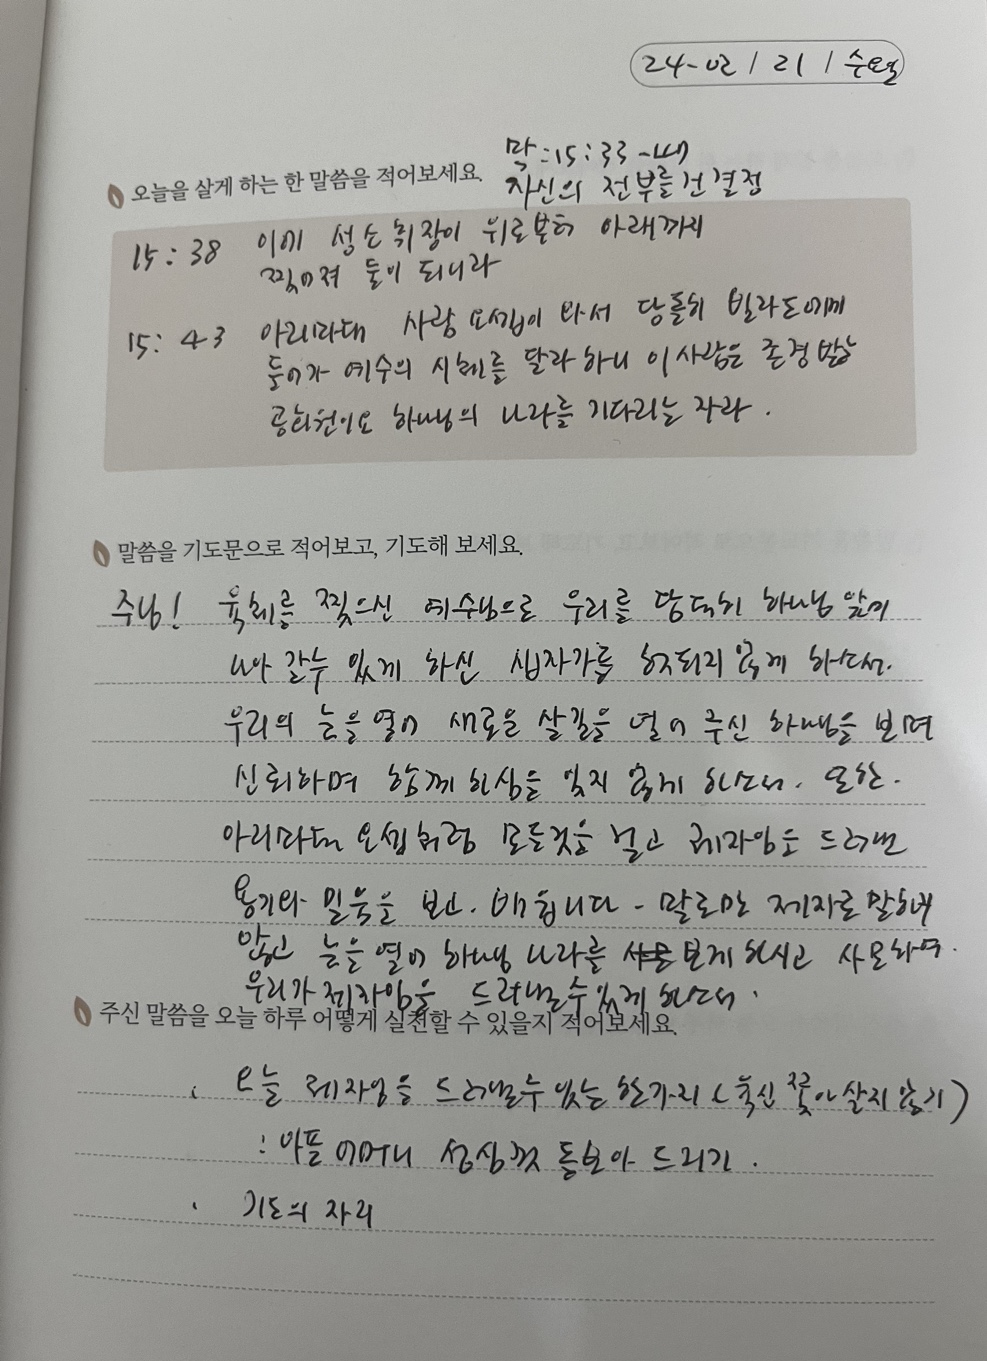 24-02 / 21 / 수요일
막:15:33-47
오늘을 살게 하는 한 말씀을 적어보세요.
자신의 전부를 건 결정
15:38 이에 성소 휘장이 위로부터 아래까지
찢어져 둘이 되니라
15:43 아리마대 사람 요셉이 와서 당돌히 빌라도에게
들어가 예수의 시체를 달라 하니 이 사람은 존경 받는
공회원이요 하나님의 나라를 기다리는 자라.
말씀을 기도문으로 적어보고, 기도해 보세요.
주님! 육체를 찢으신 예수님으로 우리를 당당히 하나님 앞에
나아 갈수 있게 하신 십자가를 헛되지 않게 하소서.
우리의 눈을 열어 새로운 살길을 열어 주신 하나님을 보며
신뢰하며 함께 하심을 잊지 않게 하소서. 또한.
아리마대 요셉처럼 모든것을 걸고 제자임을 드러낸
용기와 믿음을 보고. 배웁니다 - 말로만 제자로 말하지
않고 눈을 열어 하나님 나라를 보게 하시고 사모하여.
우리가 제자임을 드러낼수 있게 하소서.
주신 말씀을 오늘 하루 어떻게 실천할 수 있을지 적어보세요.
· 오늘 제자임을 드러낼수 있는 한가지 ( 꽂아 살지 않기)
: 아픈 어머니 성심껏 돌보아 드리기.
· 기도의 자리